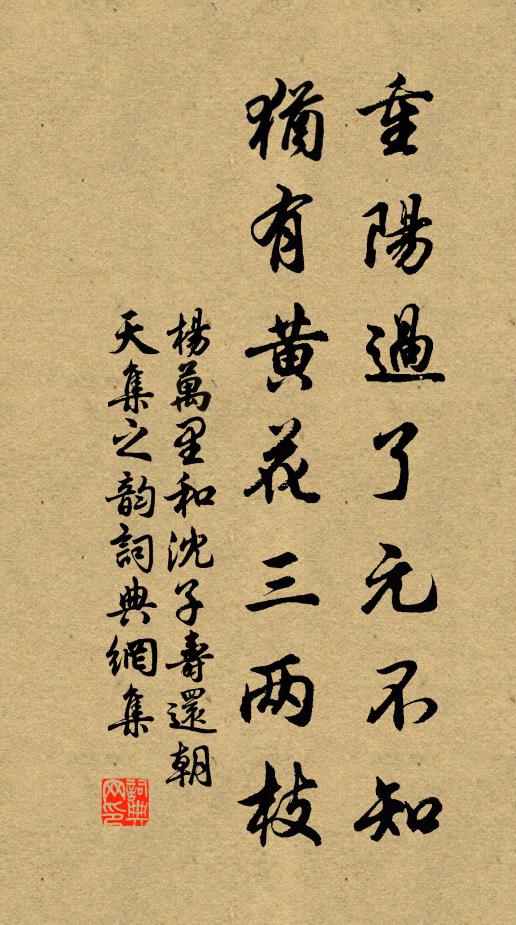 重陽過了元不知
猶有黄花三两枝
楊萬里和沈子壽還朝
天集之韵詞典網集
詞典网印